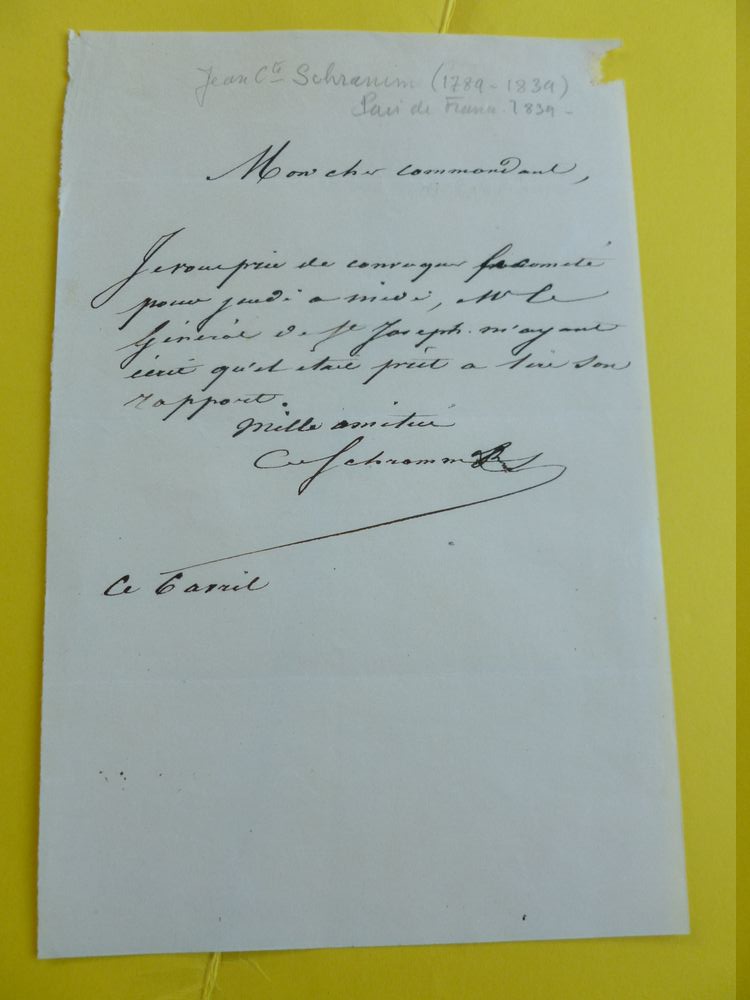 Jean Cte Schramm (1789-1839)
Pair de France 1839 -
Mon cher commandant,
Je vous prie de convoquer le comité
pour jeudi a midi, Mr le
Général de St Joseph m'ayant
écrit qu'il etait prêt a lire son
rapport.
Mille amitiés
Cte Schramm
Ce 6 avril